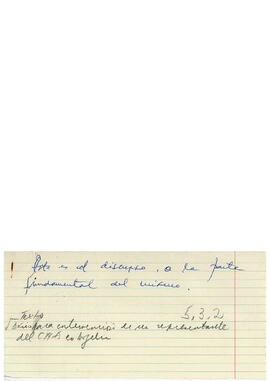 Este es el discurso, o la parte
fundamental del mismo.
5,3,2
Texto
para intervención de un representante
del